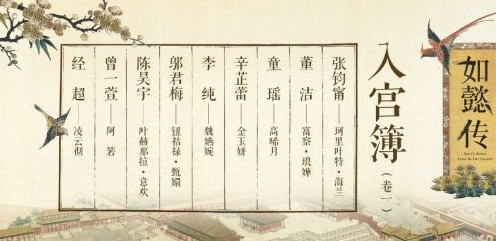 如懿传
入宫簿
（卷一）
张钧甯——珂里叶特·海兰
董洁——富察·琅嬅
童瑶——高晞月
辛芷蕾——金玉妍
李纯——魏嬿婉
邬君梅——钮祜禄·甄嬛
陈昊宇——叶赫那拉·意欢
曾一萱——阿箬
经超——凌云彻